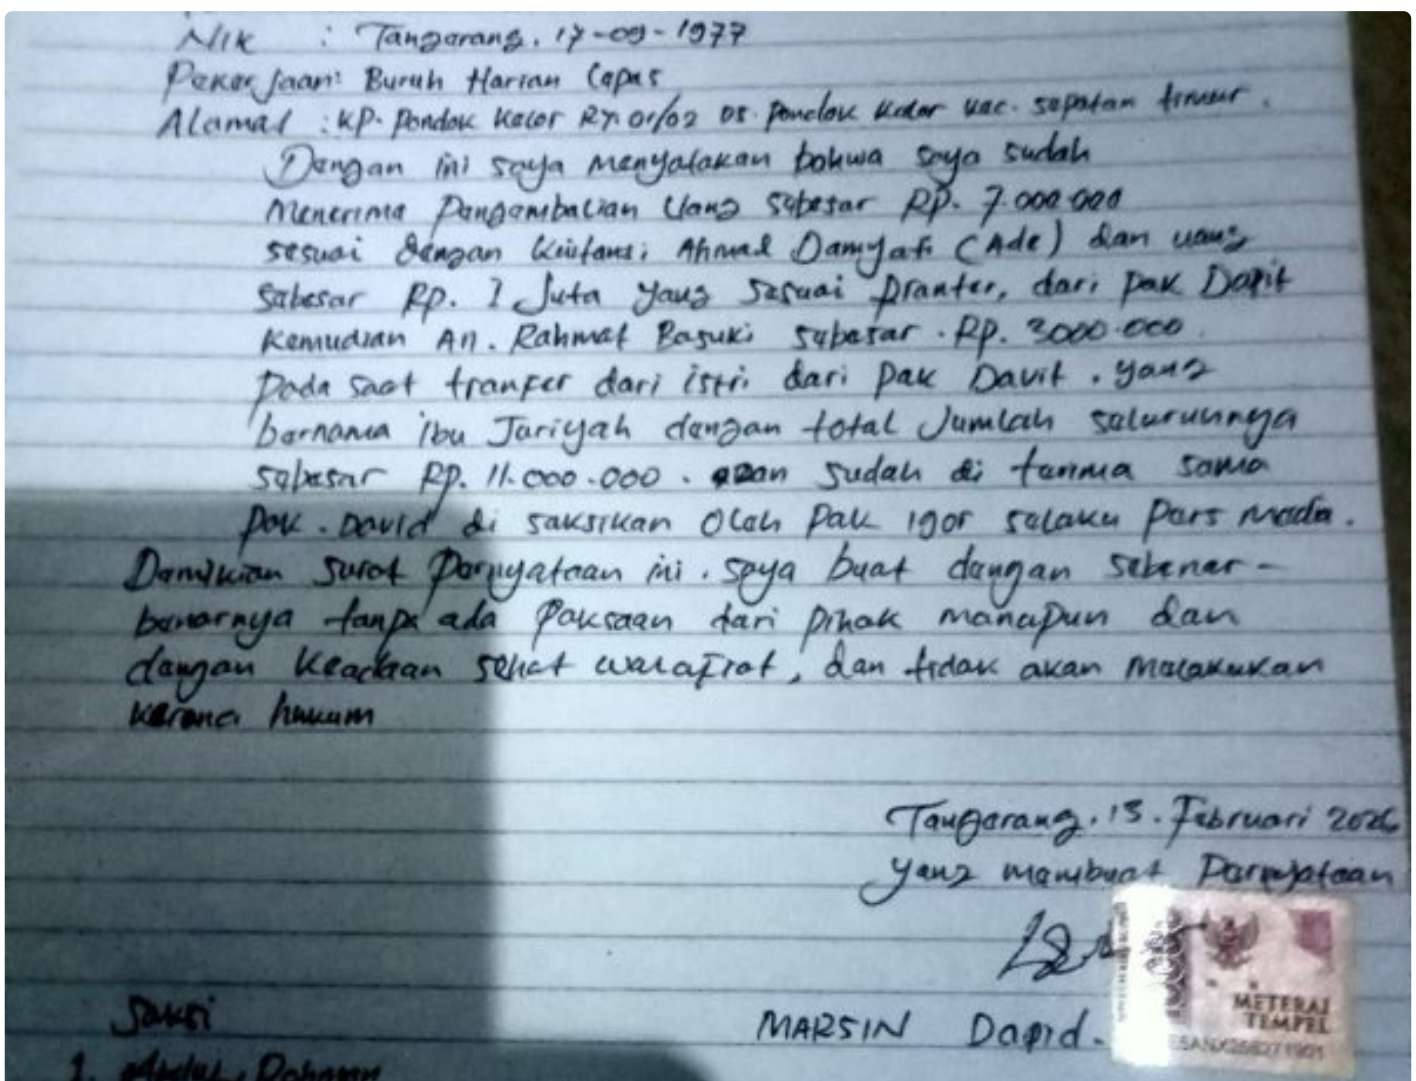 NIK : Tangerang, 17-09-1977
Pekerjaan: Buruh Harian Lepas
Alamat : KP. Pondok Kelor RT. 01/02 DS. Pondok Kelor Kec. Sepatan timur.
Dengan ini saya menyatakan bahwa saya sudah
Menerima Pengembalian Uang sebesar RP. 7.000.000
sesuai dengan Kwitansi Ahmad Damyati (Ade) dan uang
sebesar RP. 1 Juta yang sesuai Tranfer, dari pak Dapit
Kemudian An. Rahmat Basuki sebesar. RP. 3000.000.
Pada saat tranfer dari istri dari Pak Davit, yang
bernama ibu Jariyah dengan total Jumlah seluruhnya
sebesar RP. 11.000.000. sudah di terima sama
pak. David di saksikan Oleh Pak Igor selaku Pers Media.
Demikian Surat Pernyataan ini. saya buat dengan sebenar-
benarnya tanpa ada Paksaan dari pihak manapun dan
dengan Keadaan sehat walafiat, dan tidak akan Melakukan
hukum
Tangerang, 15. Februari 2026
yang membuat Pernyataan
METERAI
TEMPEL
MARSIN Dapid.
Saksi
1.